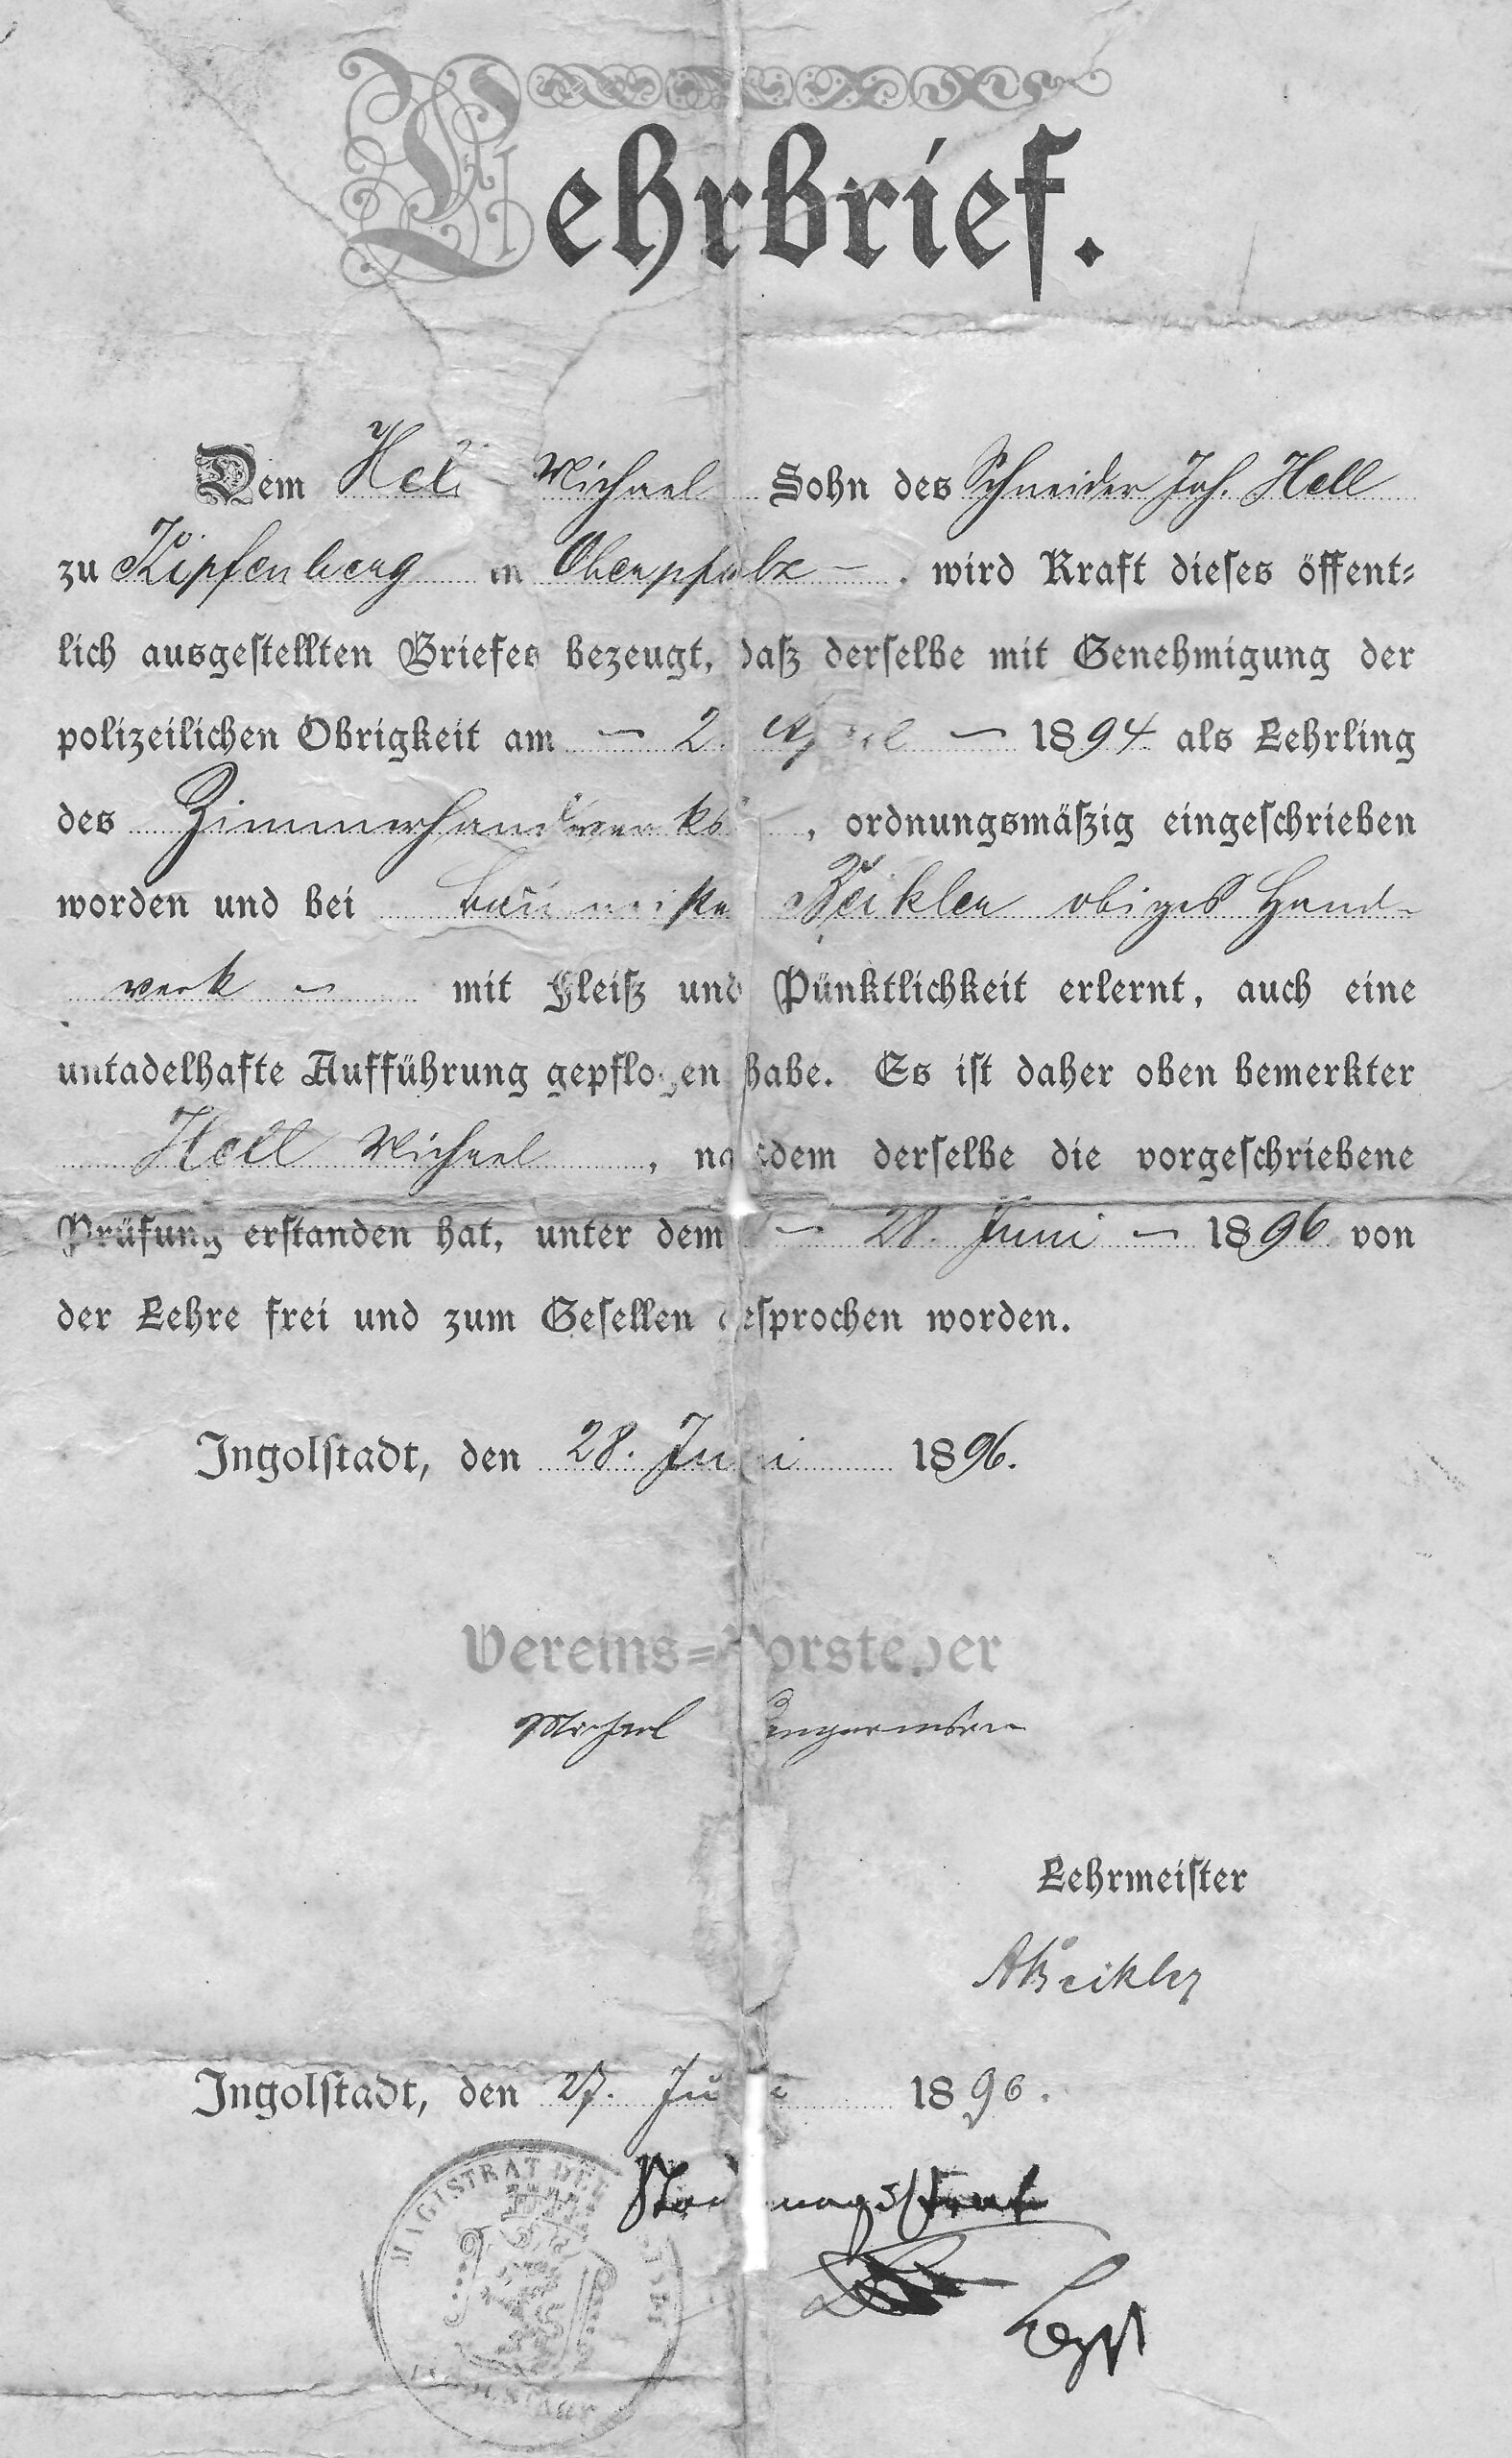 Lehrbrief.
Dem Hell Michael Sohn des Schneider Joh. Hell
zu Kipfenberg in Oberpfalz – . wird Kraft dieses öffent-
lich ausgestellten Briefes bezeugt, daß derselbe mit Genehmigung der
polizeilichen Obrigkeit am – 2. April – 1894 als Lehrling
des Zimmerhandwerks , ordnungsmäßig eingeschrieben
worden und bei Baumeister Beikler obiges Hand-
werk – mit Fleiß und Pünktlichkeit erlernt, auch eine
untadelhafte Aufführung gepflogen habe. Es ist daher oben bemerkter
Hell Michael , nachdem derselbe die vorgeschriebene
Prüfung erstanden hat, unter dem – 28. Juni – 1896 von
der Lehre frei und zum Gesellen gesprochen worden.
Ingolstadt, den 28. Juni 1896.
Vereins=Vorsteher
Michael
Lehrmeister
A Beikler
Ingolstadt, den 27. Juli 1896.
Stadtmagistrat
MAGISTRAT DER STADT
INGOLSTADT